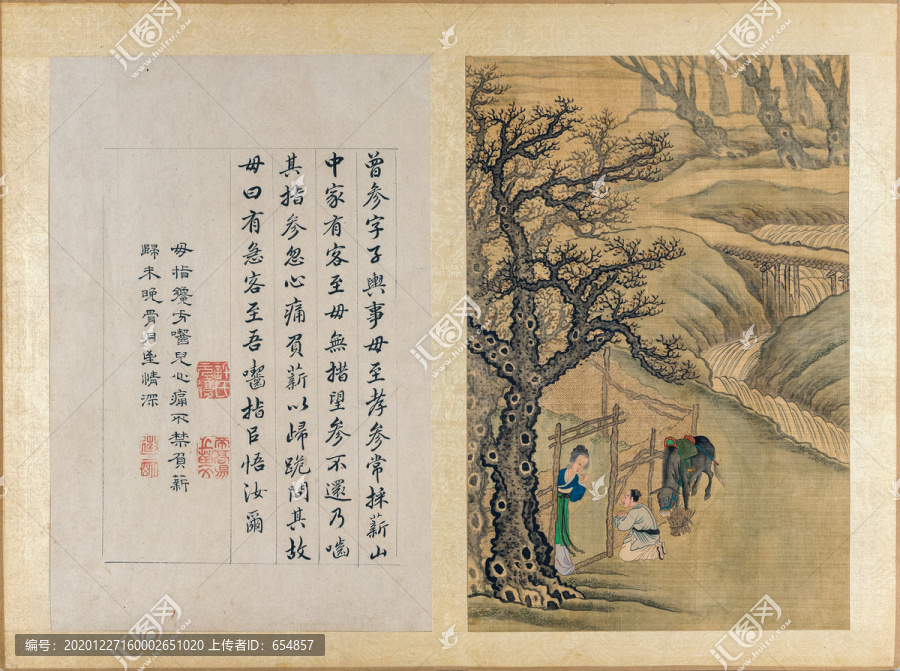 曾參字子輿事母至孝參常採薪山
中家有客至母無措望參不還乃嚙
其指參忽心痛負薪以歸跪問其故
母曰有急客至吾嚙指㠯悟汝爾
母指纔方嚙兒心痛不禁負薪
歸未晚骨肉至情深
汇图网
www.huitu.com
编号：20201227160002651020 上传者ID：654857